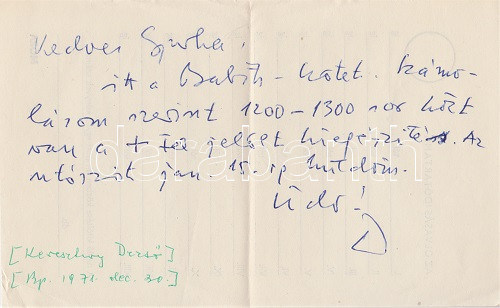 Kedves Gyuka,
itt a Babits-kötet. Számo-
lásom szerint 1200–1300 sor közt
van a + jellel kiegészítés. Az
utószót jan. 15.ig küldöm.
Üdv!
D
[Keresztury Dezső]
[Bp. 1971. dec. 30.]
darabanth